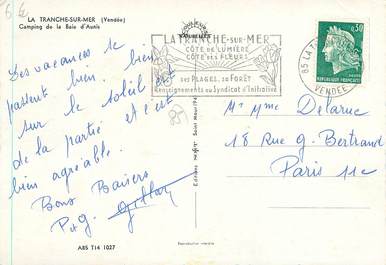 LA TRANCHE-SUR-MER (Vendée)
Camping de la Baie d'Aunis
Les vacances se
passent bien. bien
sur le soleil est
de la partie et c'est
bien agréable.
Bons Baisers
P et G.
LA TRANCHE-SUR-MER
CÔTE DE LUMIÈRE
CÔTE DES FLEURS
SES PLAGES, SA FORÊT
Renseignements au Syndicat d'Initiative
85 LA
VENDÉE
0,30
REPUBLIQUE FRANÇAISE
Mr Mme Delarue
18 Rue G. Bertrand
Paris 11e
A85 T14 1027
Reproduction interdite